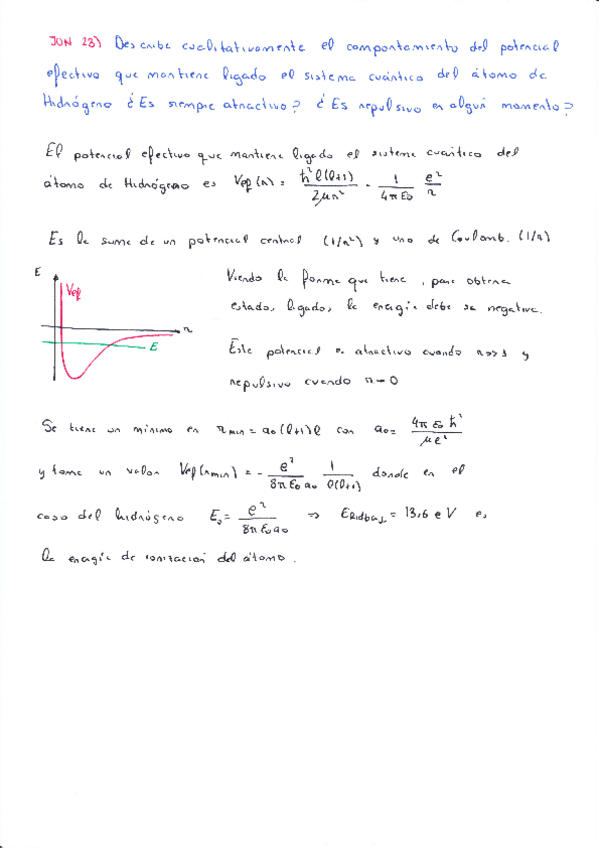 JUN 23) Describe cualitativamente el comportamiento del potencial
efectivo que mantiene ligado el sistema cuántico del átomo de
Hidrógeno ¿Es siempre atractivo? ¿Es repulsivo en algún momento?
El potencial efectivo que mantiene ligado el sistema cuántico del
átomo de Hidrógeno es Vef(r) = ħ² l(l+1) / 2μr² - 1 / 4πε0 e² / r
Es la suma de un potencial central (1/r²) y uno de Coulomb. (1/r)
E
Vef
r
E
Viendo la forma que tiene, para obtener
estados ligados, la energía debe ser negativa.
Este potencial es atractivo cuando r>>1 y
repulsivo cuando r→0
Se tiene un mínimo en rmin = a0(l+1)l con a0 = 4πε0ħ² / μe²
y tome un valor Vef(rmin) = - e² / 8πε0a0 1 / l(l+1) donde en el
caso del hidrógeno E0 = e² / 8πε0a0 ⇒ ERidberg = 13,6 eV es
la energía de ionización del átomo.